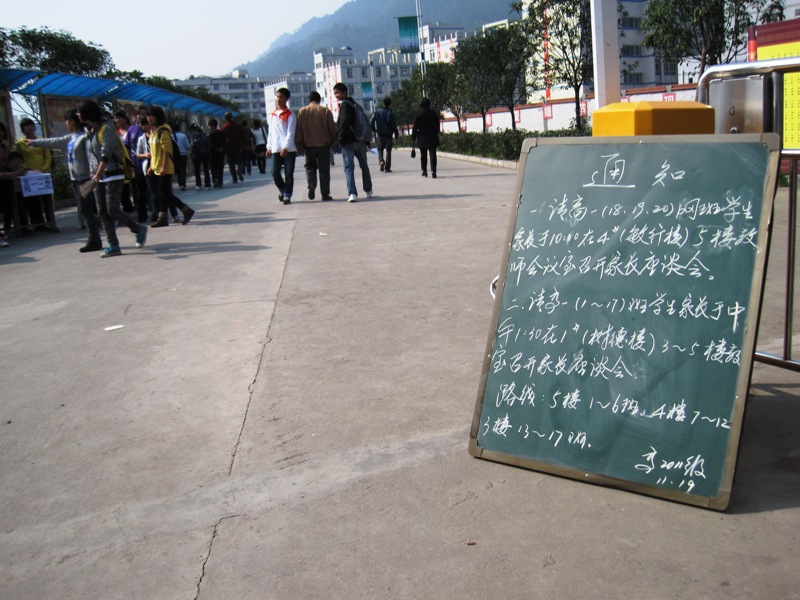 通知
一、请高一(18、19、20)网班学生
家长于10:00在4#(敏行楼)5楼教
师会议室召开家长座谈会。
二、请高一(1～17)班学生家长于中
午1:30在1#(树德楼)3～5楼教
室召开家长座谈会
路线:5楼1～6班、4楼7～12
3楼13～17班.
高2011级
11.19